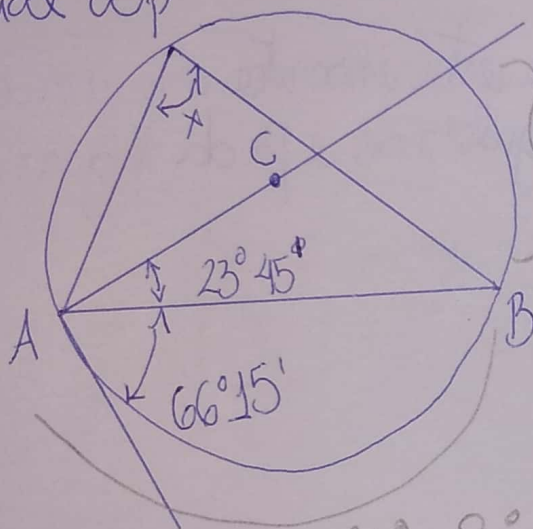 x
C
23° 45'
A
B
66°15'